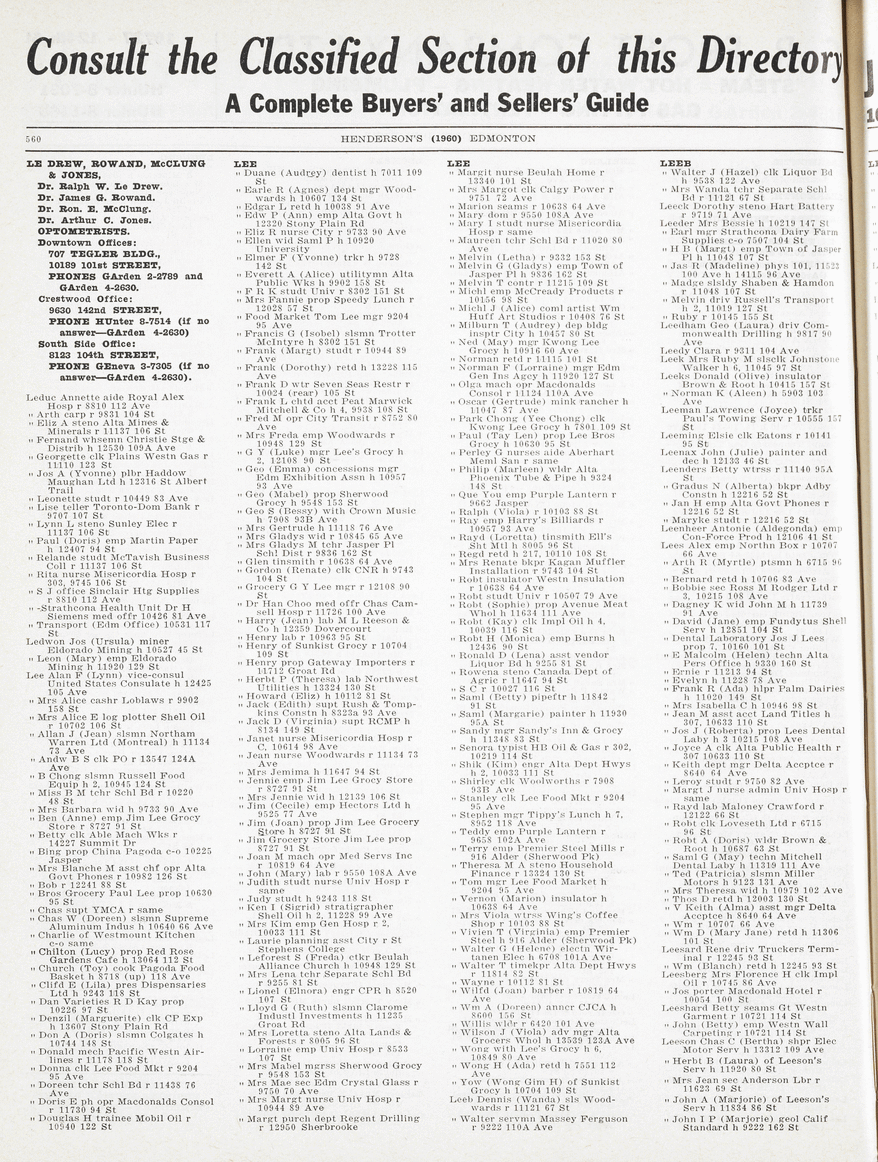 Consult the Classified Section of this Directory
A Complete Buyers' and Sellers' Guide
560
HENDERSON'S (1960) EDMONTON
LE DREW, ROWAND, McCLUNG
& JONES,
Dr. Ralph W. Le Drew.
Dr. James G. Rowand.
Dr. Ron. E. McClung.
Dr. Arthur C. Jones.
OPTOMETRISTS.
Downtown Offices:
707 TEGLER BLDG.,
10189 101st STREET,
PHONES GArden 2-2789 and
GArden 4-2630.
Crestwood Office:
9630 142nd STREET,
PHONE HUnter 8-7514 (if no
answer—GArden 4-2630)
South Side Office:
8123 104th STREET,
PHONE GEneva 3-7305 (if no
answer—GArden 4-2630).
Leduc Annette aide Royal Alex
Hosp r 8810 112 Ave
" Arth carp r 9831 104 St
" Eliz A steno Alta Mines &
Minerals r 11137 106 St
" Fernand whsemn Christie Stge &
Distrib h 12530 109A Ave
" Georgette clk Plains Westn Gas r
11110 123 St
" Jos A (Yvonne) plbr Haddow
Maughan Ltd h 12316 St Albert
Trail
" Leonette studt r 10449 83 Ave
" Lise teller Toronto-Dom Bank r
9707 107 St
" Lynn L steno Sunley Elec r
11137 106 St
" Paul (Doris) emp Martin Paper
h 12407 94 St
" Relande studt McTavish Business
Coll r 11137 106 St
" Rita nurse Misericordia Hosp r
303, 9745 106 St
" S J office Sinclair Htg Supplies
r 8810 112 Ave
" -Strathcona Health Unit Dr H
Siemens med offr 10426 81 Ave
" Transport (Edm Office) 10531 117
St
Ledwon Jos (Ursula) miner
Eldorado Mining h 10527 45 St
" Leon (Mary) emp Eldorado
Mining h 11920 129 St
Lee Alan F (Lynn) vice-consul
United States Consulate h 12425
105 Ave
" Mrs Alice cashr Loblaws r 9902
158 St
" Mrs Alice E log plotter Shell Oil
r 10702 106 St
" Allan J (Jean) slsmn Northam
Warren Ltd (Montreal) h 11134
73 Ave
" Andw B S clk PO r 13547 124A
Ave
" B Chong slsmn Russell Food
Equip h 2, 10945 124 St
" Miss B M tchr Schl Bd r 10220
48 St
" Mrs Barbara wid h 9733 90 Ave
" Ben (Anne) emp Jim Lee Grocy
Store r 8727 91 St
" Betty clk Able Mach Wks r
14227 Summit Dr
" Bing prop China Pagoda c-o 10225
Jasper
" Mrs Blanche M asst chf opr Alta
Govt Phones r 10982 126 St
" Bob r 12241 88 St
" Bros Grocery Paul Lee prop 10630
95 St
" Chas supt YMCA r same
" Chas W (Doreen) slsmn Supreme
Aluminum Indus h 10640 66 Ave
" Charlie of Westmount Kitchen
c-o same
" Chilton (Lucy) prop Red Rose
Gardens Cafe h 13064 112 St
" Church (Toy) cook Pagoda Food
Basket h 8718 (up) 118 Ave
" Cliffd E (Lila) pres Dispensaries
Ltd h 9243 118 St
" Dan Varieties R D Kay prop
10226 97 St
" Denzil (Marguerite) clk CP Exp
h 13607 Stony Plain Rd
" Don A (Doris) slsmn Colgates h
10744 148 St
" Donald mech Pacific Westn Air-
lines r 11178 118 St
" Donna clk Lee Food Mkt r 9204
95 Ave
" Doreen tchr Schl Bd r 11438 76
Ave
" Doris E ph opr Macdonalds Consol
r 11730 94 St
" Douglas H trainee Mobil Oil r
10940 122 St
LEE
" Duane (Audrey) dentist h 7011 109
St
" Earle R (Agnes) dept mgr Wood-
wards h 10607 134 St
" Edgar L retd h 10038 91 Ave
" Edw P (Ann) emp Alta Govt h
12320 Stony Plain Rd
" Eliz R nurse City r 9733 90 Ave
" Ellen wid Saml P h 10920
University
" Elmer F (Yvonne) trkr h 9728
142 St
" Everett A (Alice) utilitymn Alta
Public Wks h 9902 158 St
" F R K studt Univ r 8302 151 St
" Mrs Fannie prop Speedy Lunch r
12028 57 St
" Food Market Tom Lee mgr 9204
95 Ave
" Francis G (Isobel) slsmn Trotter
McIntyre h 8302 151 St
" Frank (Margt) studt r 10944 89
Ave
" Frank (Dorothy) retd h 13228 115
Ave
" Frank D wtr Seven Seas Restr r
10024 (rear) 105 St
" Frank L chtd acct Peat Marwick
Mitchell & Co h 4, 9938 108 St
" Fred M opr City Transit r 8752 80
Ave
" Mrs Freda emp Woodwards r
10948 129 St
" G Y (Luke) mgr Lee's Grocy h
2, 12108 90 St
" Geo (Emma) concessions mgr
Edm Exhibition Assn h 10957
93 Ave
" Geo (Mabel) prop Sherwood
Grocy h 9548 153 St
" Geo S (Bessy) with Crown Music
h 7908 93B Ave
" Mrs Gertrude h 11118 76 Ave
" Mrs Gladys wid r 10845 65 Ave
" Mrs Gladys M tchr Jasper Pl
Schl Dist r 9836 162 St
" Glen tinsmith r 10638 64 Ave
" Gordon (Renate) clk CNR h 9743
104 St
" Grocery G Y Lee mgr r 12108 90
St
" Dr Han Choo med offr Chas Cam-
sell Hosp r 11726 100 Ave
" Harry (Jean) lab M L Reeson &
Co h 12359 Dovercourt
" Henry lab r 10963 95 St
" Henry of Sunkist Grocy r 10704
109 St
" Henry prop Gateway Importers r
11712 Groat Rd
" Herbt P (Theresa) lab Northwest
Utilities h 13324 130 St
" Howard (Eliz) h 10112 81 St
" Jack (Edith) supt Rush & Tomp-
kins Constn h 8323a 93 Ave
" Jack D (Virginia) supt RCMP h
8134 149 St
" Janet nurse Misericordia Hosp r
C, 10614 98 Ave
" Jean nurse Woodwards r 11134 73
Ave
" Mrs Jemima h 11647 94 St
" Jennie emp Jim Lee Grocy Store
r 8727 91 St
" Mrs Jennie wid h 12139 106 St
" Jim (Cecile) emp Hectors Ltd h
9525 77 Ave
" Jim (Joan) prop Jim Lee Grocery
Store h 8727 91 St
" Jim Grocery Store Jim Lee prop
8727 91 St
" Joan M mach opr Med Servs Inc
r 10819 64 Ave
" John (Mary) lab r 9550 108A Ave
" Judith studt nurse Univ Hosp r
same
" Judy studt h 9243 118 St
" Ken I (Sigrid) stratigrapher
Shell Oil h 2, 11228 99 Ave
" Mrs Kim emp Gen Hosp r 2,
10033 111 St
" Laurie planning asst City r St
Stephens College
" Leforest S (Freda) ctkr Beulah
Alliance Church h 10948 129 St
" Mrs Lena tchr Separate Schl Bd
r 9255 81 St
" Lionel (Elnora) engr CPR h 8520
107 St
" Lloyd G (Ruth) slsmn Clarome
Industl Investments h 11235
Groat Rd
" Mrs Loretta steno Alta Lands &
Forests r 8005 96 St
" Lorraine emp Univ Hosp r 8533
107 St
" Mrs Mabel mgrss Sherwood Grocy
r 9548 153 St
" Mrs Mae sec Edm Crystal Glass r
9750 70 Ave
" Mrs Margt nurse Univ Hosp r
10944 89 Ave
" Margt purch dept Regent Drilling
r 12950 Sherbrooke
LEE
" Margit nurse Beulah Home r
13340 101 St
" Mrs Margot clk Calgy Power r
9751 72 Ave
" Marion seams r 10638 64 Ave
" Mary dom r 9550 108A Ave
" Mary I studt nurse Misericordia
Hosp r same
" Maureen tchr Schl Bd r 11020 80
Ave
" Melvin (Letha) r 9332 153 St
" Melvin G (Gladys) emp Town of
Jasper Pl h 9836 162 St
" Melvin T contr r 11215 109 St
" Michl emp McCready Products r
10156 98 St
" Michl J (Alice) coml artist Wm
Huff Art Studios r 10408 76 St
" Milburn T (Audrey) dep bldg
insptr City h 10457 80 St
" Ned (May) mgr Kwong Lee
Grocy h 10916 60 Ave
" Norman retd r 11115 101 St
" Norman F (Lorraine) mgr Edm
Gen Ins Agcy h 11920 127 St
" Olga mach opr Macdonalds
Consol r 11124 110A Ave
" Oscar (Gertrude) mink rancher h
11047 87 Ave
" Park Chong (Yee Chong) clk
Kwong Lee Grocy h 7801 109 St
" Paul (Tay Len) prop Lee Bros
Grocy h 10630 95 St
" Perley G nurses aide Aberhart
Meml San r same
" Philip (Marleen) wldr Alta
Phoenix Tube & Pipe h 9324
148 St
" Que You emp Purple Lantern r
9662 Jasper
" Ralph (Viola) r 10103 88 St
" Ray emp Harry's Billiards r
10957 93 Ave
" Rayd (Loretta) tinsmith Ell's
Sht Mtl h 8005 96 St
" Regd retd h 217, 10110 108 St
" Mrs Renate bkpr Kagan Muffler
Installation r 9743 104 St
" Robt insulator Westn Insulation
r 10638 64 Ave
" Robt studt Univ r 10507 79 Ave
" Robt (Sophie) prop Avenue Meat
Whol h 11634 111 Ave
" Robt (Kay) clk Impl Oil h 4,
10039 116 St
" Robt H (Monica) emp Burns h
12436 90 St
" Ronald D (Lena) asst vendor
Liquor Bd h 9255 81 St
" Rowena steno Canada Dept of
Agric r 11647 94 St
" S C r 10027 116 St
" Saml (Betty) pipeftr h 11842
91 St
" Saml (Margarie) painter h 11930
95A St
" Sandy mgr Sandy's Inn & Grocy
h 11348 83 St
" Senora typist HB Oil & Gas r 302,
10219 114 St
" Shik (Kim) engr Alta Dept Hwys
h 2, 10033 111 St
" Shirley clk Woolworths r 7908
93B Ave
" Stanley clk Lee Food Mkt r 9204
95 Ave
" Stephen mgr Tippy's Lunch h 7,
8952 118 Ave
" Teddy emp Purple Lantern r
9658 102A Ave
" Terry emp Premier Steel Mills r
916 Alder (Sherwood Pk)
" Theresa M A steno Household
Finance r 13324 130 St
" Tom mgr Lee Food Market h
9204 95 Ave
" Vernon (Marion) insulator h
10638 64 Ave
" Mrs Viola wtrss Wing's Coffee
Shop r 10103 88 St
" Vivien T (Virginia) emp Premier
Steel h 916 Alder (Sherwood Pk)
" Walter G (Helene) electn Win-
tanen Elec h 6708 101A Ave
" Walter T timekpr Alta Dept Hwys
r 11814 82 St
" Wayne r 10112 81 St
" Wilfd (Joan) barber r 10819 64
Ave
" Wm A (Doreen) anncr CJCA h
8600 156 St
" Willis wldr r 6420 101 Ave
" Wilson J (Viola) adv mgr Alta
Grocers Whol h 13539 123A Ave
" Wong with Lee's Grocy h 6,
10849 80 Ave
" Wong H (Ada) retd h 7551 112
Ave
" Yow (Wong Gim H) of Sunkist
Grocy h 10704 109 St
Leeb Dennis (Wanda) sls Wood-
wards r 11121 67 St
" Walter servmn Massey Ferguson
r 9222 110A Ave
LEEB
" Walter J (Hazel) clk Liquor Bd
h 9538 122 Ave
" Mrs Wanda tchr Separate Schl
Bd r 11121 67 St
Leeck Dorothy steno Hart Battery
r 9719 71 Ave
Leeder Mrs Bessie h 10219 147 St
" Earl mgr Strathcona Dairy Farm
Supplies c-o 7507 104 St
" H B (Margt) emp Town of Jasper
Pl h 11048 107 St
" Jas R (Madeline) phys 101, 11523
100 Ave h 14115 96 Ave
" Madge slsldy Shaben & Hamdon
r 11048 107 St
" Melvin driv Russell's Transport
h 2, 11019 127 St
" Ruby r 10145 155 St
Leedham Geo (Laura) driv Com-
monwealth Drilling h 9817 90
Ave
Leedy Clara r 9311 104 Ave
Leek Mrs Ruby M slsclk Johnstone
Walker h 6, 11045 97 St
Leeks Donald (Olive) insulator
Brown & Root h 10415 157 St
" Norman K (Aleen) h 5903 103
Ave
Leeman Lawrence (Joyce) trkr
Paul's Towing Serv r 10555 157
St
Leeming Elsie clk Eatons r 10141
95 St
Leenax John (Julie) painter and
dec h 12133 46 St
Leenders Betty wtrss r 11140 95A
St
" Gradus N (Alberta) bkpr Adby
Constn h 12216 52 St
" Jan H emp Alta Govt Phones r
12216 52 St
" Maryke studt r 12216 52 St
Leenheer Antonie (Aldegonda) emp
Con-Force Prod h 12106 41 St
Lees Alex emp Northn Box r 10707
66 Ave
" Arth R (Myrtle) ptsmn h 6715 96
St
" Bernard retd h 10706 83 Ave
" Bobbie sec Ross M Rodger Ltd r
3, 10215 108 Ave
" Dagney K wid John M h 11739
91 Ave
" David (Jane) emp Fundytus Shell
Serv h 12851 104 St
" Dental Laboratory Jos J Lees
prop 7, 10160 101 St
" E Malcolm (Helen) techn Alta
Pers Office h 9330 160 St
" Ernie r 11213 94 St
" Evelyn h 11228 78 Ave
" Frank R (Ada) hlpr Palm Dairies
h 11020 149 St
" Mrs Isabella C h 10946 98 St
" Jean M asst acct Land Titles h
307, 10633 110 St
" Jos J (Roberta) prop Lees Dental
Laby h 3 10215 108 Ave
" Joyce A clk Alta Public Health r
307 10633 110 St
" Keith dept mgr Delta Accptce r
8640 64 Ave
" Leroy studt r 9750 82 Ave
" Margt J nurse admin Univ Hosp r
same
" Rayd lab Maloney Crawford r
12122 66 St
" Robt clk Loveseth Ltd r 6715
96 St
" Robt A (Doris) wldr Brown &
Root h 10687 63 St
" Saml G (May) techn Mitchell
Dental Laby h 11319 111 Ave
" Ted (Patricia) slsmn Miller
Motors h 9123 131 Ave
" Mrs Theresa wid h 10979 102 Ave
" Thos D retd h 12003 130 St
" V Keith (Alma) asst mgr Delta
Accptce h 8640 64 Ave
" Wm r 10707 66 Ave
" Wm D (Mary Jane) retd h 11306
101 St
Leesard Rene driv Truckers Term-
inal r 12245 93 St
" Wm (Blanch) retd h 12245 93 St
Leesberg Mrs Florence H clk Impl
Oil r 10745 86 Ave
" Jos porter Macdonald Hotel r
10054 100 St
Leeshard Betty seams Gt Westn
Garment r 10721 114 St
" John (Betty) emp Westn Wall
Carpeting r 10721 114 St
Leeson Chas C (Bertha) shpr Elec
Motor Serv h 13312 109 Ave
" Herbt B (Laura) of Leeson's
Serv h 11920 80 St
" Mrs Jean sec Anderson Lbr r
11623 69 St
" John A (Marjorie) of Leeson's
Serv h 11834 86 St
" John I P (Marjorie) geol Calif
Standard h 9222 162 St